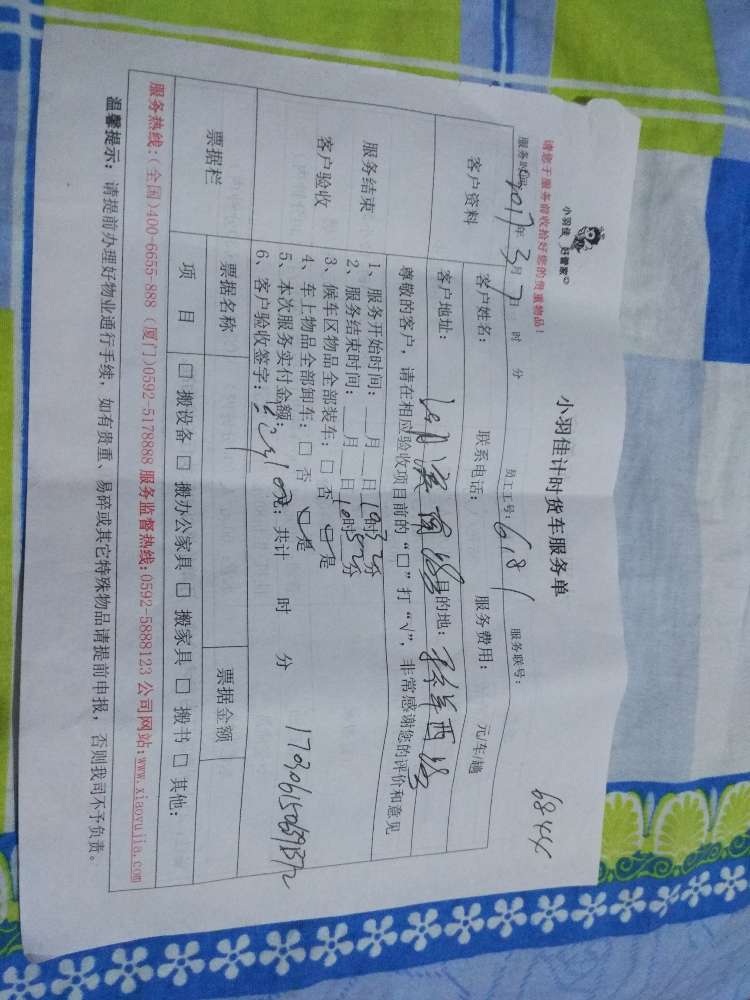 小羽佳 好管家
请您于服务前收拾好您的贵重物品！
小羽佳计时货车服务单
6844
服务时间：2017年3月7日 时 分 员工工号：681 服务联号：
客户资料
客户姓名： 联系电话： 服务费用： 元/车/趟
客户地址： 目的地：
服务结束
客户验收
尊敬的客户，请在相应验收项目前的“□”打“√”，非常感谢您的评价和意见
1、服务开始时间：__月__日10时32分
2、服务结束时间：__月__日10时52分
3、候车区物品全部装车：□ 否 □ 是
4、车上物品全部卸车：□ 否 □ 是
5、本次服务实付金额： 元；共计 时 分
6、客户验收签字：
票据栏
票据名称 票据金额
项 目 □ 搬设备 □ 搬办公家具 □ 搬家具 □ 搬书 □ 其他：
服务热线：(全国)400-6655-888 (厦门)0592-5178888 服务监督热线:0592-5888123 公司网站:www.xiaoyujia.com
温馨提示：请提前办理好物业通行手续，如有贵重、易碎或其它特殊物品请提前申报，否则我司不予负责。